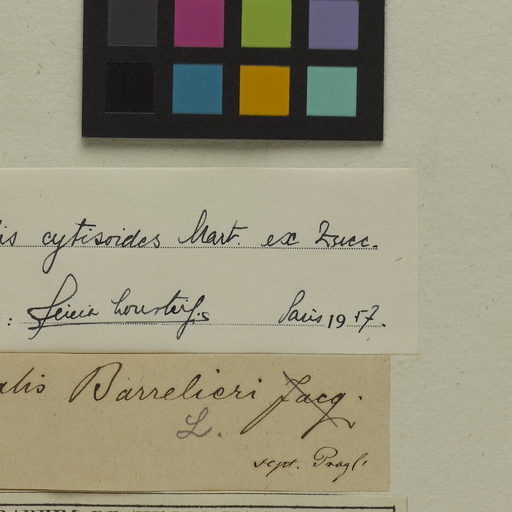 is cytisoides Mart. ex Zucc.
: Alicia Lourteig. Paris 1957.
alis Barrelieri Jacq.
L.
sept. Progl